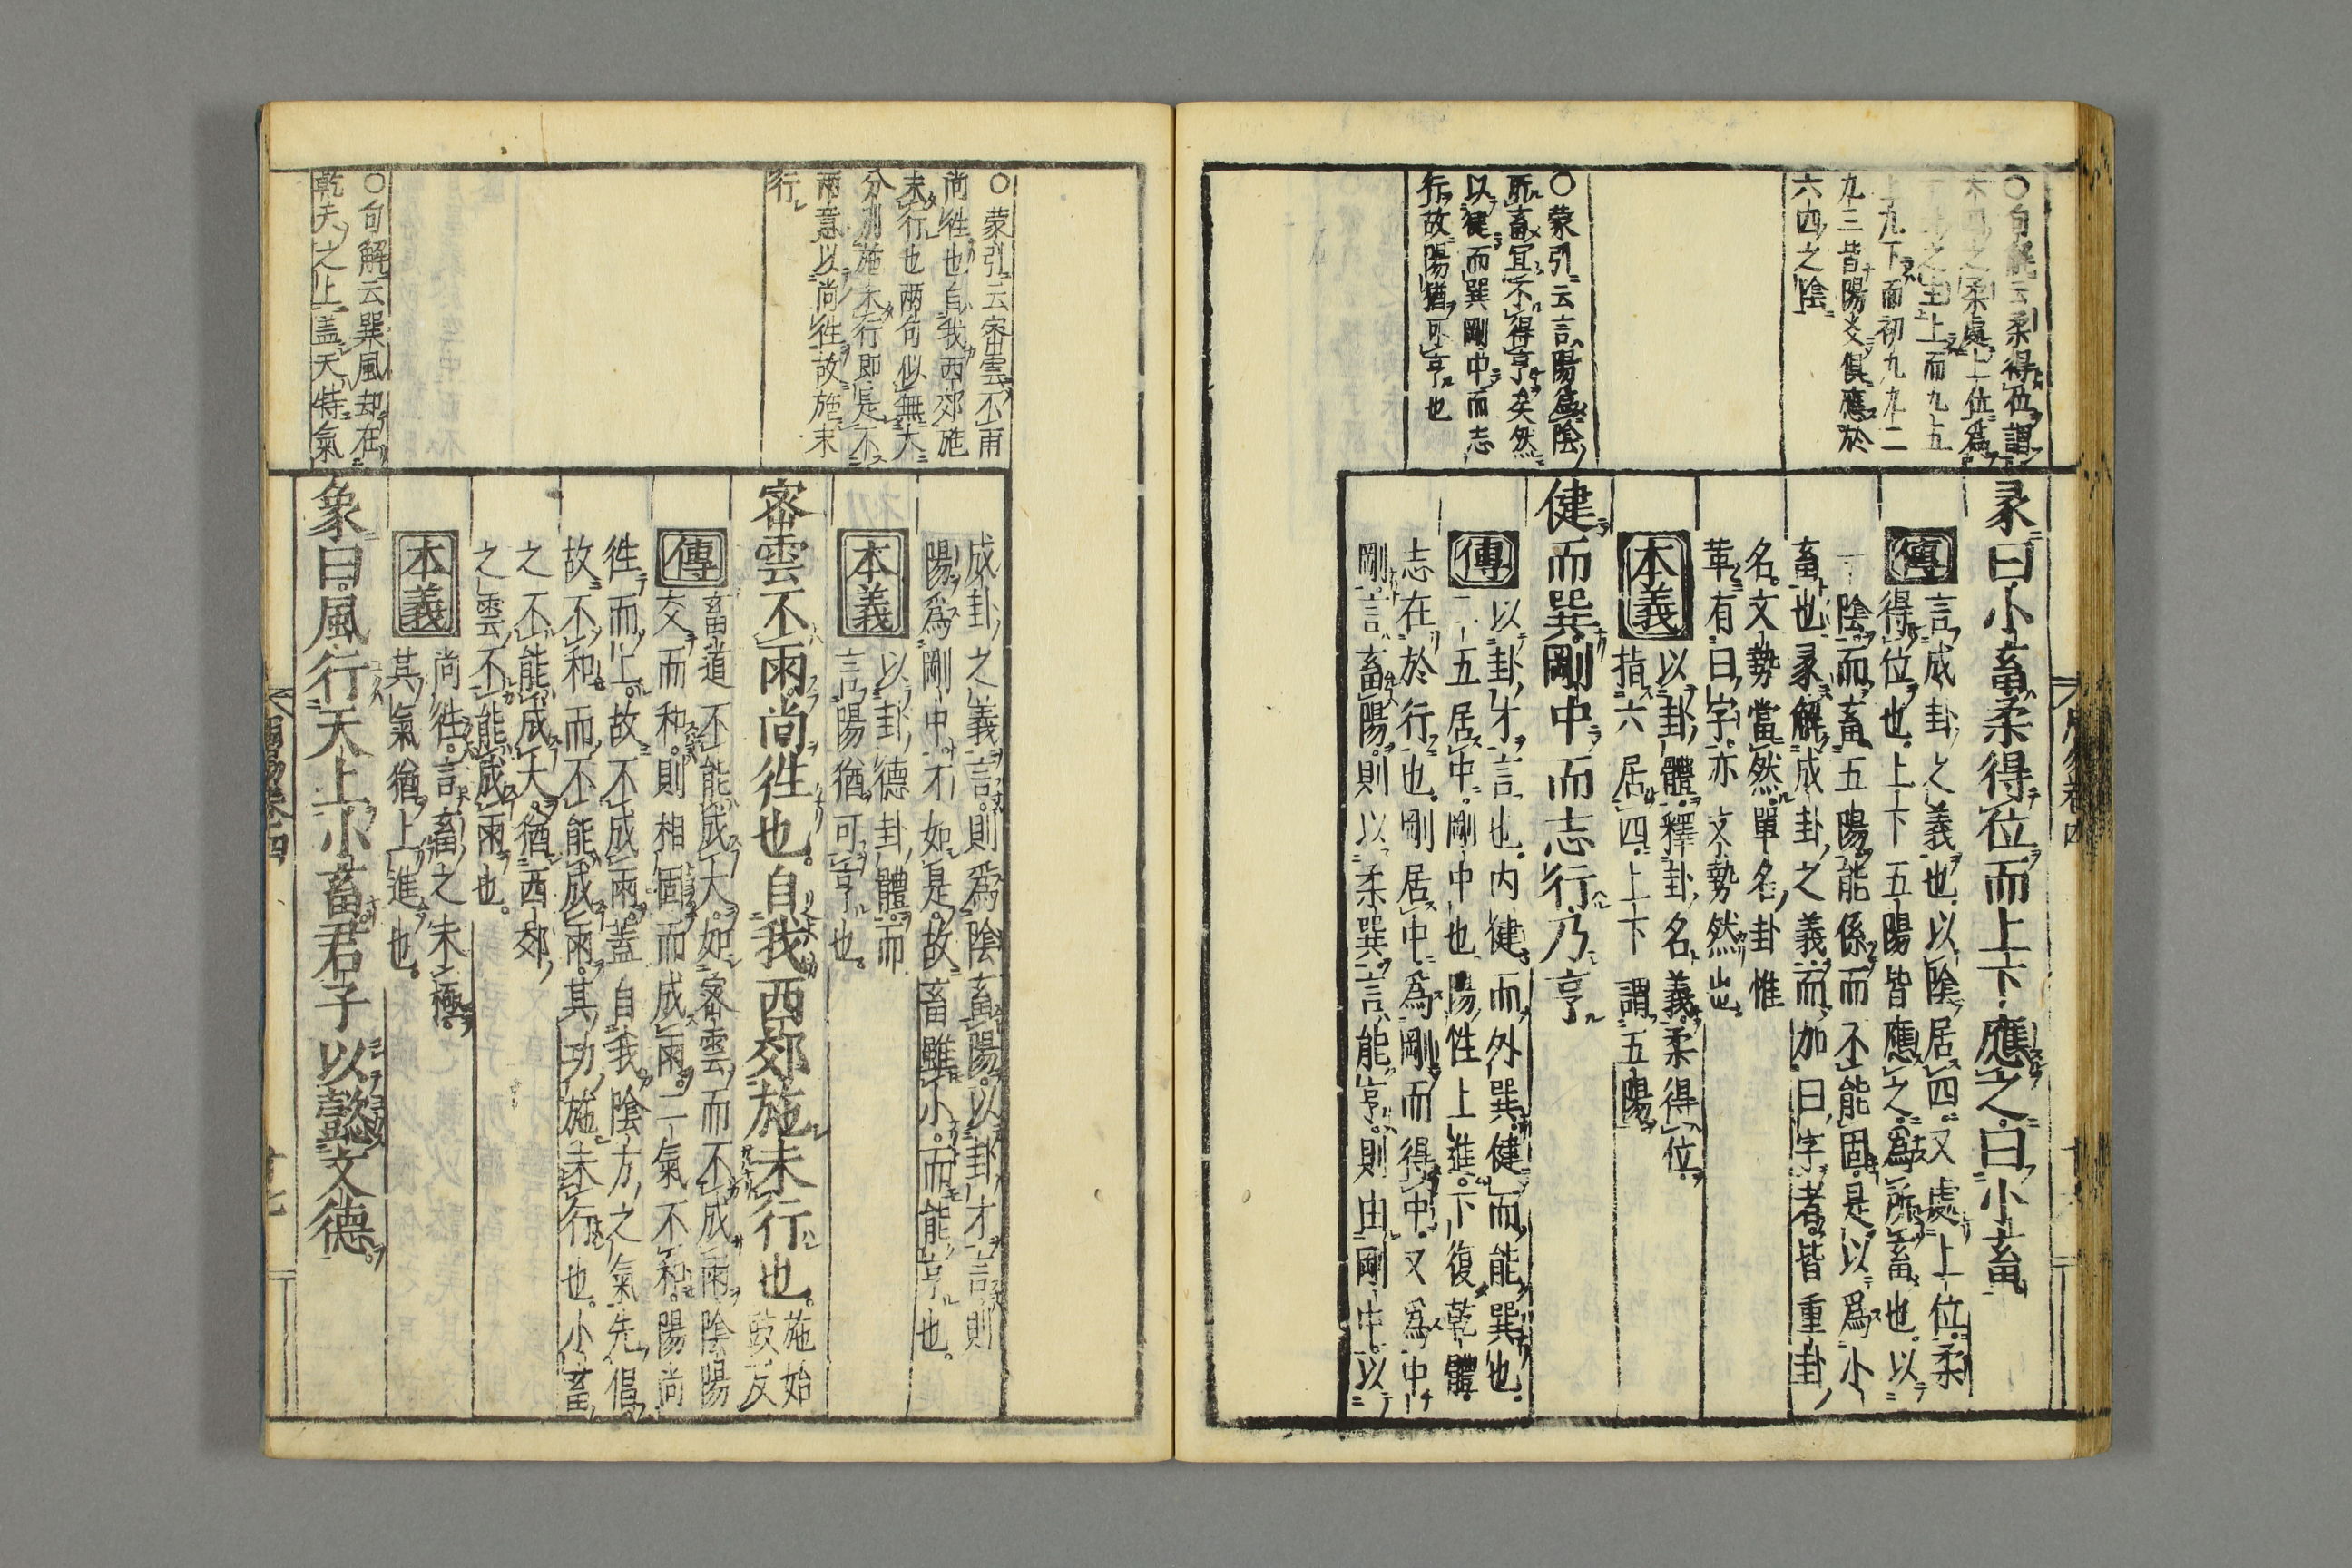 〇句解云柔得位謂
六四之柔處上位爲
之主上而九五
上九下而初九九二
九三皆陽爻俱應於
六四之陰
〇蒙引云言陽爲陰
所畜宜不得亨矣然
以健而巽剛中而志
行故陽猶可亨也
彖曰小畜柔得位而上下應之曰小畜
傳
言成卦之義也。以陰居四。又處上位。柔
得位也。上下五陽皆應之。爲所畜也。以
一陰而畜五陽。能係而不能固。是以爲小
畜也。彖解成卦之義。而加曰字者。皆重卦
名。文勢當然。單名卦惟
革有曰字。亦文勢然也。
本義
以卦體釋卦名義。柔得位。
指六居四。上下謂五陽。
健而巽。剛中而志行乃亨
傳
以卦才言也。内健而外巽。健而能巽也。
二五居中。剛中也。陽性上進。下復乾體。
志在於行也。剛居中。爲剛而得中。又爲中
剛。言畜陽。則以柔巽。言能亨。則由剛中。以
周易卷四
〇蒙引云密雲不雨
尚徃也自我西郊施
未行也兩句似無大
分別施未行即是不
雨意以尚徃故施未
行
〇句解云巽風却在
乾天之上盖天特氣
成卦之義言。則爲陰畜陽。以卦才言。則
陽爲剛中。才如是。故畜雖小。而能亨也。
本義
以卦德卦體。而
言陽猶可亨也。
密雲不雨。尚徃也。自我西郊。施未行也。
施始
豉反
傳
畜道不能成大。如密雲而不成雨。陰陽
交而和。則相固而成雨。二氣不和。陽尚
徃而上。故不成雨。盖自我陰方之氣先倡。
故不和而不能成雨。其功施未行也。小畜
之不能成大。猶西郊
之雲。不能成雨也。
本義
尚徃。言畜之未極。
其氣猶上進也。
象曰。風行天上小畜。君子以懿文德。
周易卷四